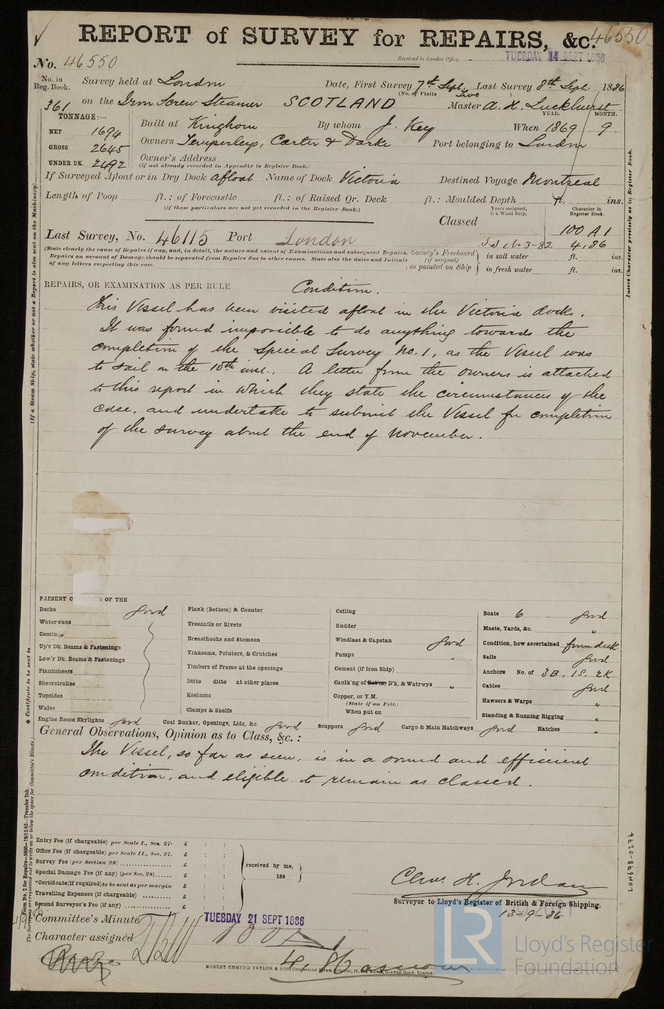 REPORT of SURVEY for REPAIRS, &c. 46550
No. 46550 Received in London Office, TUESDAY 14 SEPT 1886
No. in Reg. Book. Survey held at London Date, First Survey 7th Sept. Last Survey 8th Sept. 1886
(No. of Visits Two )
361 on the Iron Screw Steamer SCOTLAND Master A. H. Luckhurst
TONNAGE:— YEAR. MONTH.
NET 1694 Built at Kinghorn By whom J. Key When 1869 9
GROSS 2645 Owners Temperleys, Carter & Darke Port belonging to London
UNDER DK. 2492 Owner's Address
(If not already recorded in Appendix to Register Book.)
If Surveyed Afloat or in Dry Dock Afloat Name of Dock Victoria Destined Voyage Montreal
Length of Poop ft.: of Forecastle ft.: of Raised Qr. Deck ft.: Moulded Depth ft. ins.
(If these particulars are not yet recorded in the Register Book.)
Years assigned, if a Wood Ship. Character in Register Book.
Classed 100 A1
Last Survey, No. 46115 Port London 4,86
(State clearly the cause of Repairs if any, and, in detail, the nature and extent of Examinations and subsequent Repairs.
Repairs on account of Damage should be separated from Repairs due to other causes. State also the dates and Initials
of any letters respecting this case.
Society's Freeboard (if assigned) as painted on Ship
in salt water ft. ins.
in fresh water ft. ins.
REPAIRS, OR EXAMINATION AS PER RULE Condition.
This Vessel has been visited afloat in the Victoria docks.
It was found impossible to do anything towards the
completion of the Special Survey No. 1, as the Vessel was
to sail on the 10th inst. A letter from the owners is attached
to this report in which they state the circumstances of the
case, and undertake to submit the Vessel for completion
of the survey about the end of November.
PRESENT OF THE
Decks good
Waterways
Comings
Up'r Dk. Beams & Fastenings
Low'r Dk. Beams & Fastenings
Planksheers
Sheerstrakes
Topsides
Wales
Engine Room Skylights good
Plank (Bottom) & Counter
Treenails or Rivets
Breasthooks and Stemson
Transoms, Pointers, & Crutches
Timbers of Frame at the openings
Ditto ditto at other places
Keelsons
Clamps & Shelfs
Coal Bunker, Openings, Lids, &c. good
Ceiling
Rudder
Windlass & Capstan good
Pumps "
Cement (if Iron Ship)
Caulk'ng of D'k, & Watrwys "
Copper, or Y.M.
(State if on Felt.)
When put on
Scuppers good Cargo & Main Hatchways good Hatches "
Boats 6 good
Masts, Yards, &c. "
Condition, how ascertained from deck
Sails good
Anchors No. of 3B. 1S. 2K.
Cables good
Hawsers & Warps "
Standing & Running Rigging "
General Observations, Opinion as to Class, &c.:
The Vessel, so far as seen, is in a sound and efficient
condition, and eligible to remain as classed.
Entry Fee (if chargeable) per Scale I., Sec. 27. £
Office Fee (if chargeable) per Scale II., Sec. 27. £
Survey Fee (per Section 28) £
Special Damage Fee (if any) (per Sec. 28) £
*Certificate (if required) to be sent as per margin £
Travelling Expenses (if chargeable) £
Second Surveyor's Fee (if any) £
received by me,
188
Chas. H. Jordan
Surveyor to Lloyd's Register of British & Foreign Shipping.
13-9-86
Committee's Minute TUESDAY 21 SEPT 1886
Character assigned 100 A1
4,86
LON698-0276
LR
Lloyd's Register
Foundation